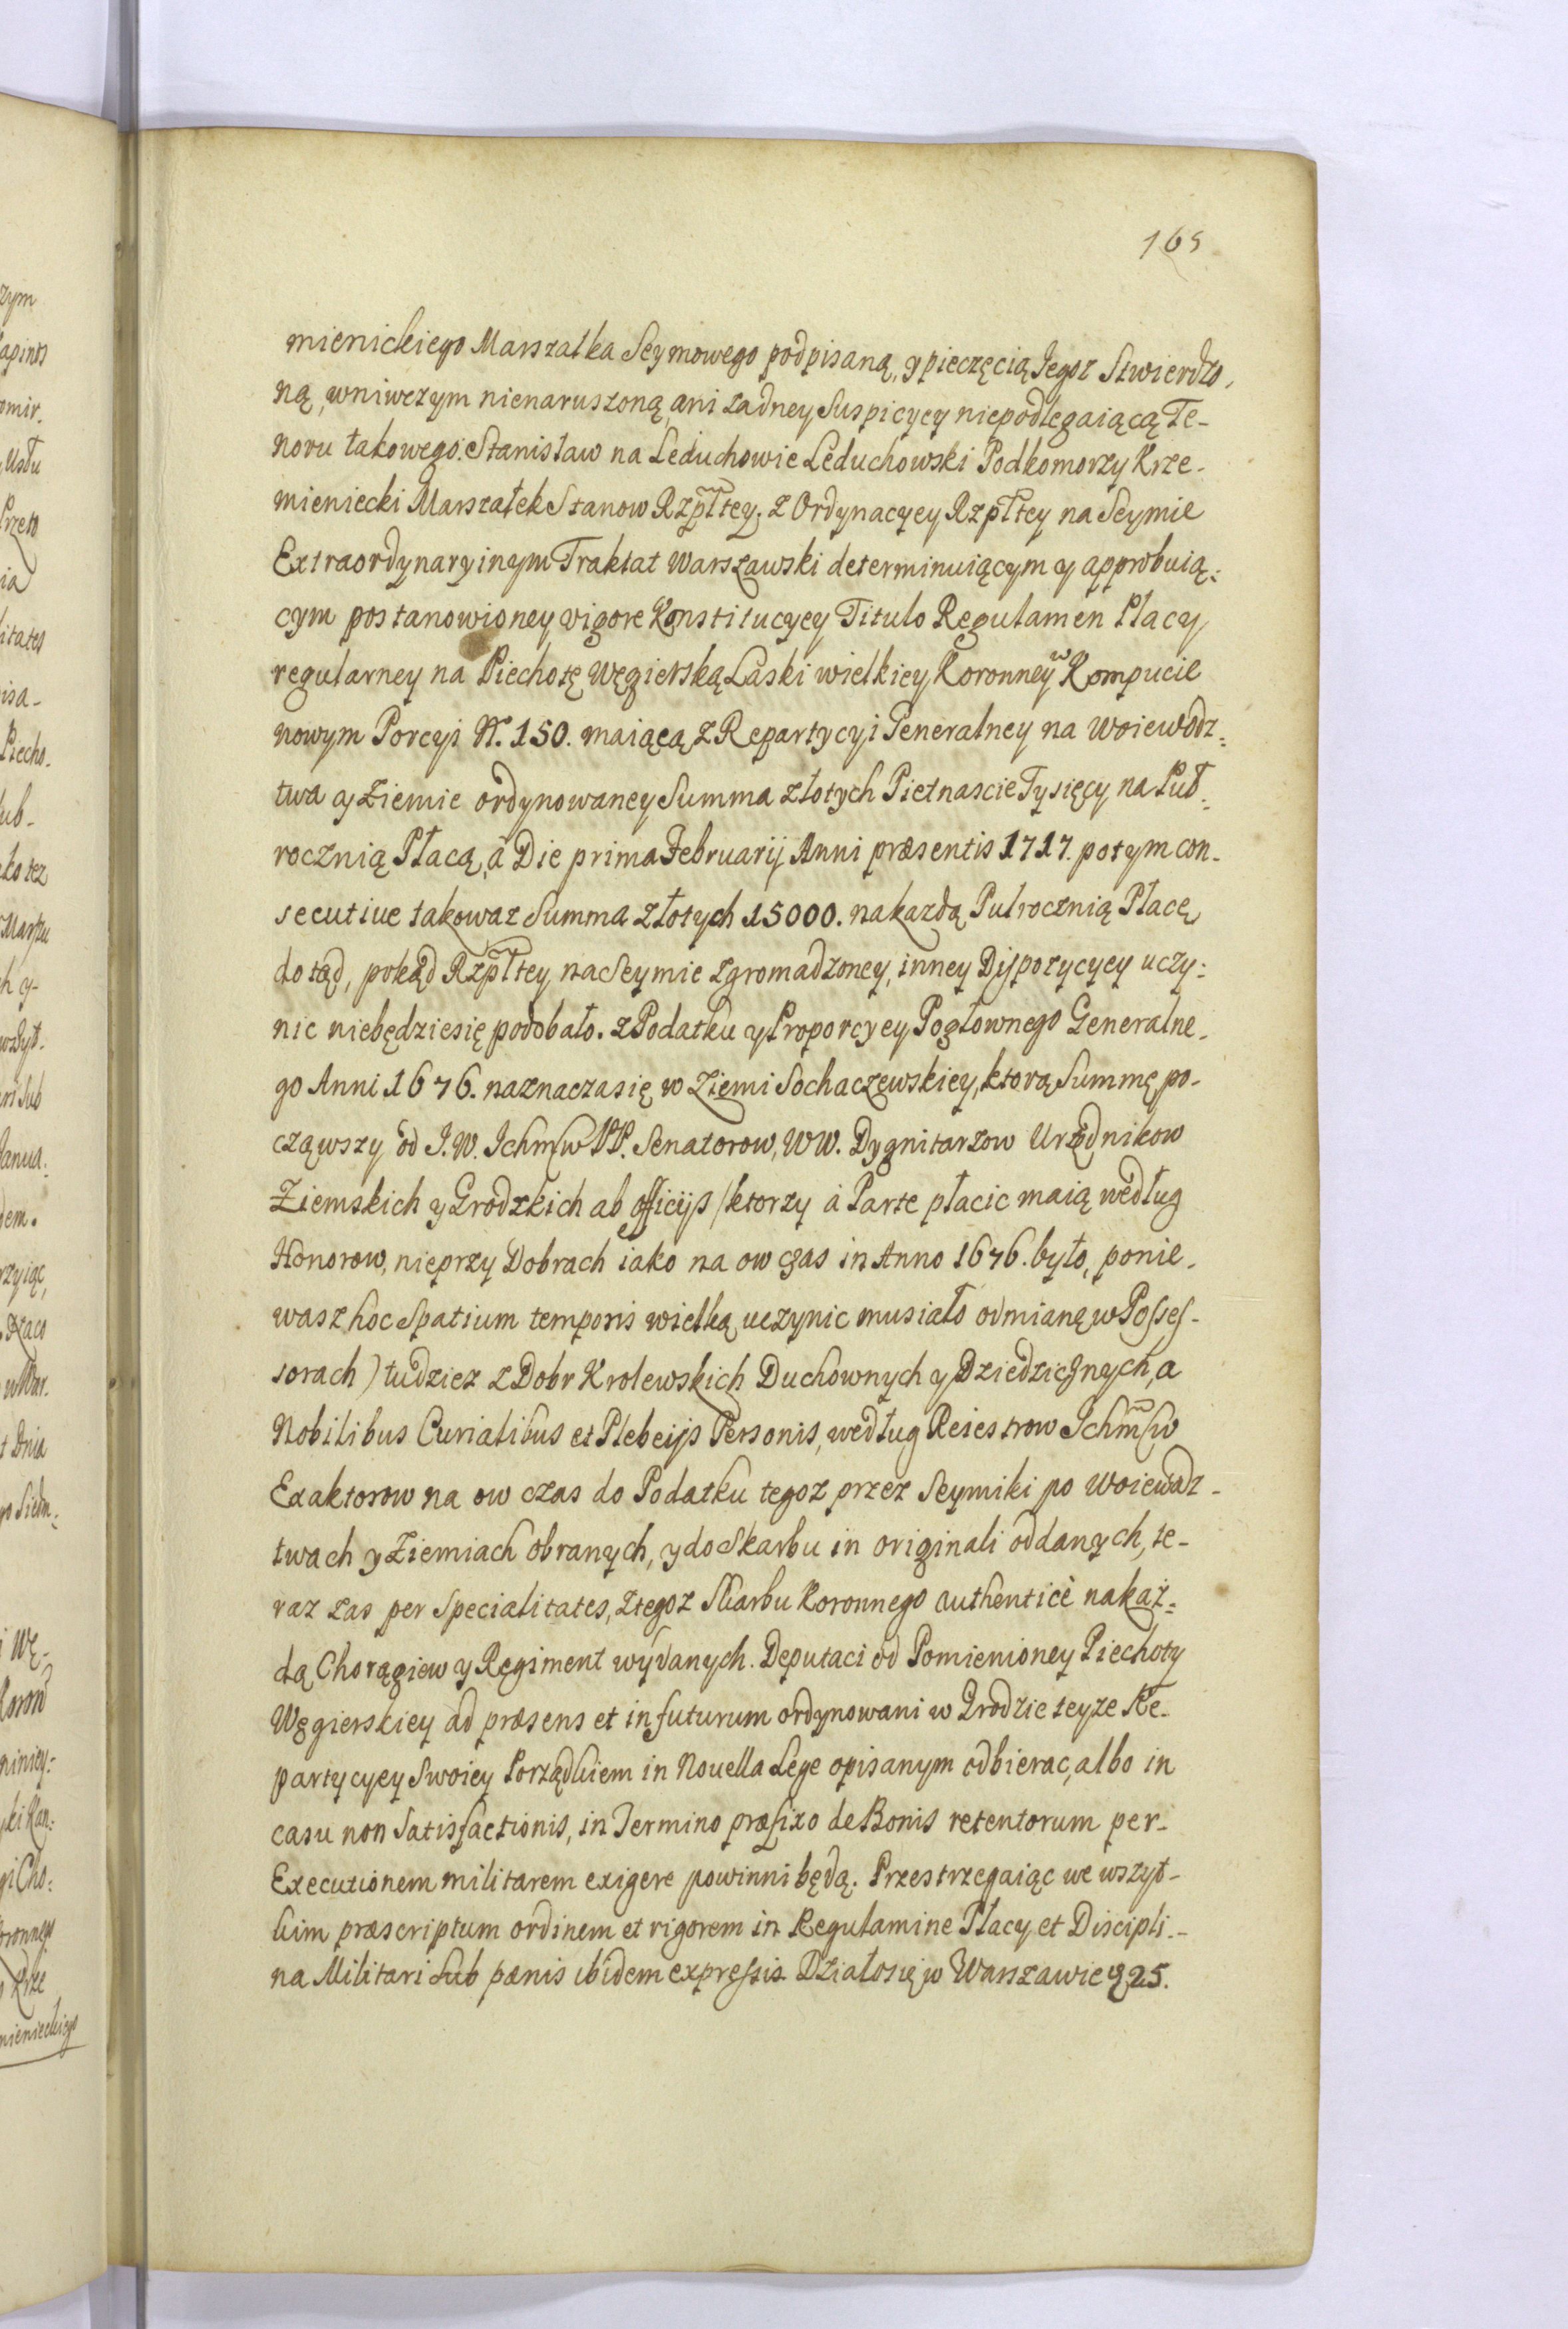 165
mienickiego Marszałka Seymowego podpisaną, y pieczęcią Jegoz Stwierdzo,
ną, wniwczym nienaruszoną, ani zadney Suspicyey niepodlegaiącą Te-
noru takowego. Stanisław na Leduchowie Leduchowski Podkomorzy Krze-
mieniecki Marszałek Stanow Rzpltey. Z Ordynacyey Rzpltey na Seymie
Extraordynaryinym Traktat Warszawski determinuiącym y approbuią:
cym postanowioney vigore Konstitucyey Titulo Regulamen Płacy
regularney na Piechotę Węgierską Laski wielkiey Koronney w Kompucie
nowym Porcyi N. 150. maiącą z Repartycyi Generalney na Woiewodz:
twa y Ziemie ordynowaney Summa złotych Pietnascie Tysięcy na Puł:
rocznią Płacą, à Die prima Februarij Anni præsentis 1717. potym con-
secutiue takowaz Summa złotych 15000. nakazdą Pułrocznią Płacę
dotąd, pokąd Rzpltey na Seymie zgromadzoney, inney Dispozycyey uczy:
nic niebędziesię podobało. z Podatku y Proporcyey Pogłownego Generalne-
go Anni 1676. naznacza się w Ziemi Sochaczewskiey, ktorą Summę po-
cząwszy od J.W. Ichmśw PP. Senatorow, WW. Dygnitarzow Urzędnikow
Ziemskich y Grodzkich ab officijs /ktorzy à Parte płacic maią według
Honorow, nieprzy Dobrach iako na ow czas in Anno 1676. było, ponie-
wasz hoc Spatium temporis wielką uczynic musiało odmianę w Posses-
sorach) tudziez z Dobr Krolewskich Duchownych y Dziedzicznych, a
Nobilibus Curialibus et Plebeijs Personis, według Reiestrow Ichmśw
Exaktorow na ow czas do Podatku tegoz przez Seymiki po Woiewodz-
twach y Ziemiach obranych, y do Skarbu in originali oddanych, te-
raz zas per Specialitates, ztegoz Skarbu Koronnego authenticè nakaz:
dą Chorągiew y Regiment wydanych. Deputaci od Pomienioney Piechoty
Węgierskiey ad præsens et in futurum ordynowani w Grodzie teyze Re-
partycyey Swoiey Porządkiem in Nouella Lege opisanym odbierac, albo in
casu non Satisfactionis, in Termino præfixo de Bonis retentorum per-
Executionem militarem exigere powinni będą. Przestrzegaiąc we wszyt-
kim præscriptum ordinem et rigorem in Regulamine Płacy, et Discipli-
na Militari sub pænis ibidem expressis Działosię w Warszawie 25.